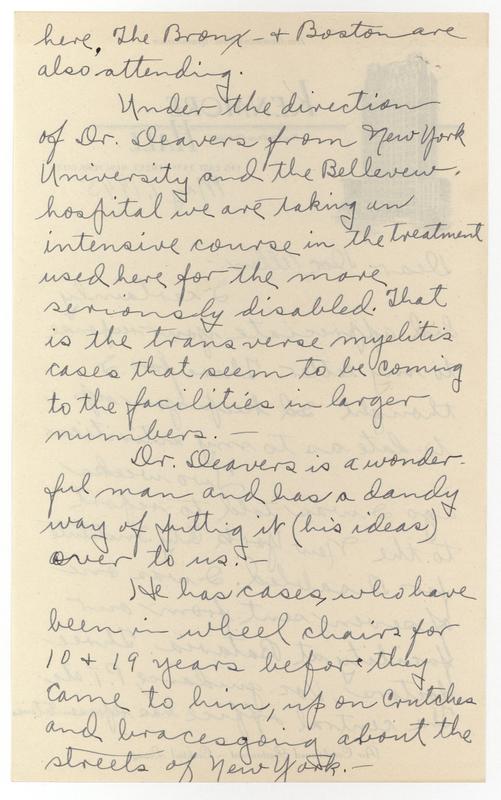 here, The Bronx - & Boston are
also attending.
Under the direction
of Dr. Deavers from New York
University and the Bellevew.
hospital we are taking an
intensive course in the treatment
used here for the more
seriously disabled. That
is the transverse myelitis
cases that seem to be coming
to the facilities in larger
numbers. —
Dr. Deavers is a wonder-
ful man and has a dandy
way of puttig it (his ideas)
over to us. —
He has cases, who have
been in wheel chairs for
10 & 19 years before they
came to him, up on crutches
and braces going about the
streets of New York. —